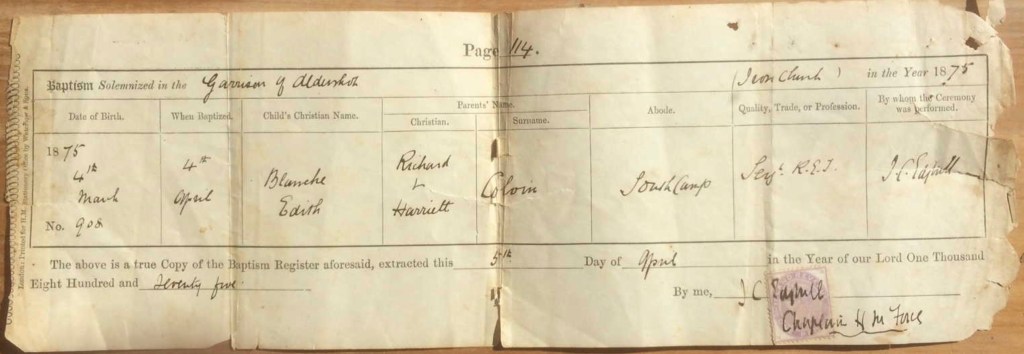 Page 114.
Baptism Solemnized in the Garrison of Aldershot (Iron Church) in the Year 1875
Date of Birth. When Baptized. Child's Christian Name. Parents' Name. Abode. Quality, Trade, or Profession. By whom the Ceremony was performed.
Christian. Surname.
1875
4th March
No. 908
4th April
Blanche Edith
Richard + Harriett
Colvin
South Camp
Serjt. R.E.
J. C. Edghill
The above is a true Copy of the Baptism Register aforesaid, extracted this 5th Day of April in the Year of our Lord One Thousand
Eight Hundred and Seventy five By me, J C Edghill
Chaplain H M Forces